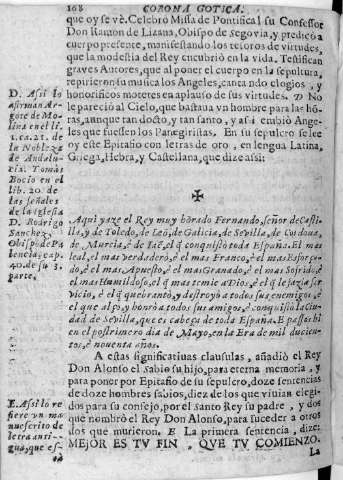 168 CORONA GOTICA.
que oy se vè. Celebrò Missa de Pontifical su Confessor
Don Ramon de Lizana, Obispo de Segovia, y predicò a
cuerpo presente, manifestando los tesoros de virtudes,
que la modestia del Rey encubriò en la vida. Testifican
graves Autores, que al poner el cuerpo en la sepultura,
repitieron su musica los Angeles, cantando elogios, y
honorificos motetes en aplauso de sus virtudes. D No
le pareciò al Cielo, que bastava vn hombre para las hō-
ras, aunque tan docto, y tan santo, y assi embiò Ange-
les que fuessen los Panegiristas. En su sepulcro se lee
oy este Epitafio con letras de oro, en lengua Latina,
Griega, Hebra, y Castellana, que dize assi:
D. Assi lo
afirman Ar-
gote de Mo-
lina en el li.
1. ca. 21. de
la Nobleza
de Andalu-
cia. Tomas
Bocio en el
lib. 20. de
las señales
de la Iglesia
D. Rodrigo
Sanchez
Obispo de Pa
lencia, cap.
40. de su 3.
parte.
✠
Aqui yaze el Rey muy hōrado Fernando, señor de Casti-
lla, y de Toledo, de Leō, de Galicia, de Sevilla, de Cordoua,
de Murcia, è de Iaē, el q̄ conquistò toda España. El mas
leal, è el mas verdadero, è el mas Franco, è el mas Esforça-
do, è el mas Apuesto, è el mas Granado, è el mas Sofrido, è
el mas Humildoso, el q̄ mas temie a Dios, è el q̄ le fazia ser-
vicio, è el q̄ quebrantò, y destroyò a todos sus enemigos, è
el que alçò, y honrò a todos sus amigos, è conquistò la Ciu-
dad de Sevilla, que es cabeça de toda España. E passòs hi
en el postrimero dia de Mayo, en la Era de mil ducien-
tos, è noventa años.
A estas significatiuas clausulas, añadiò el Rey
Don Alonso el Sabio su hijo, para eterna memoria, y
para poner por Epitafio de su sepulcro, doze sentencias
de doze hombres sabios, diez de los que viuian elegi-
dos para su consejo, por el Santo Rey su padre, y dos
que nombrò el Rey Don Alonso, para suceder a otros
dos que murieron. E La primera sentencia, dize:
MEJOR ES TV FIN, QVE TV COMIENZO.
La
E. Assi lo re
fiere vn ma
nuescrito de
letra anti-
gua, que es-